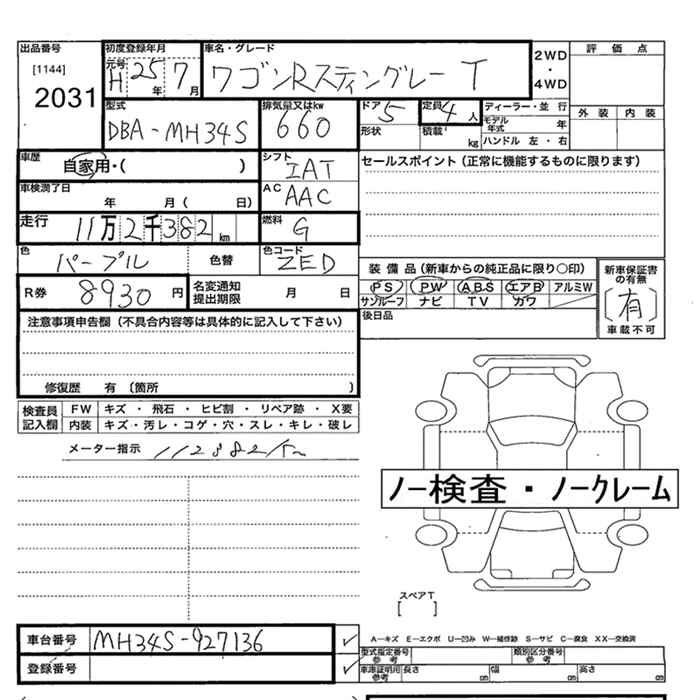 出品番号 初度登録年月 車名・グレード 評価点
[1144] 元号 H 25年 7月 ワゴンRスティングレー T 2WD・4WD
2031
型式 DBA-MH34S 排気量又はkw 660 ドア 5 定員 4人 ディーラー・並行 外装 内装
形状 積載 kg モデル年式 年
ハンドル 左・右
車歴 自家用・( ) シフト IAT セールスポイント (正常に機能するものに限ります)
車検満了日 年 月( 日) AC AAC
走行 11万2千382km 燃料 G
色 パープル 色替 色コード ZED
装備品 (新車からの純正品に限り○印) 新車保証書の有無
R券 8930円 名変通知提出期限 月 日 PS PW ABS エアB アルミW
サンルーフ ナビ TV カワ [有]
注意事項申告欄 (不具合内容等は具体的に記入して下さい) 後日品 車載不可
修復歴 有 (箇所 )
検査員記入欄 FW キズ・飛石・ヒビ割・リペア跡・X要
内装 キズ・汚レ・コゲ・穴・スレ・キレ・破レ
メーター指示 112382km
ノー検査・ノークレーム
スペアT
[ ]
車台番号 MH34S-927136 A―キズ E―エクボ U―凹み W―補修跡 S―サビ C―腐食 XX―交換済
型式指定番号 参考 類別区分番号 参考
登録番号 車庫証明用参考 長さ cm 幅 cm 高さ cm